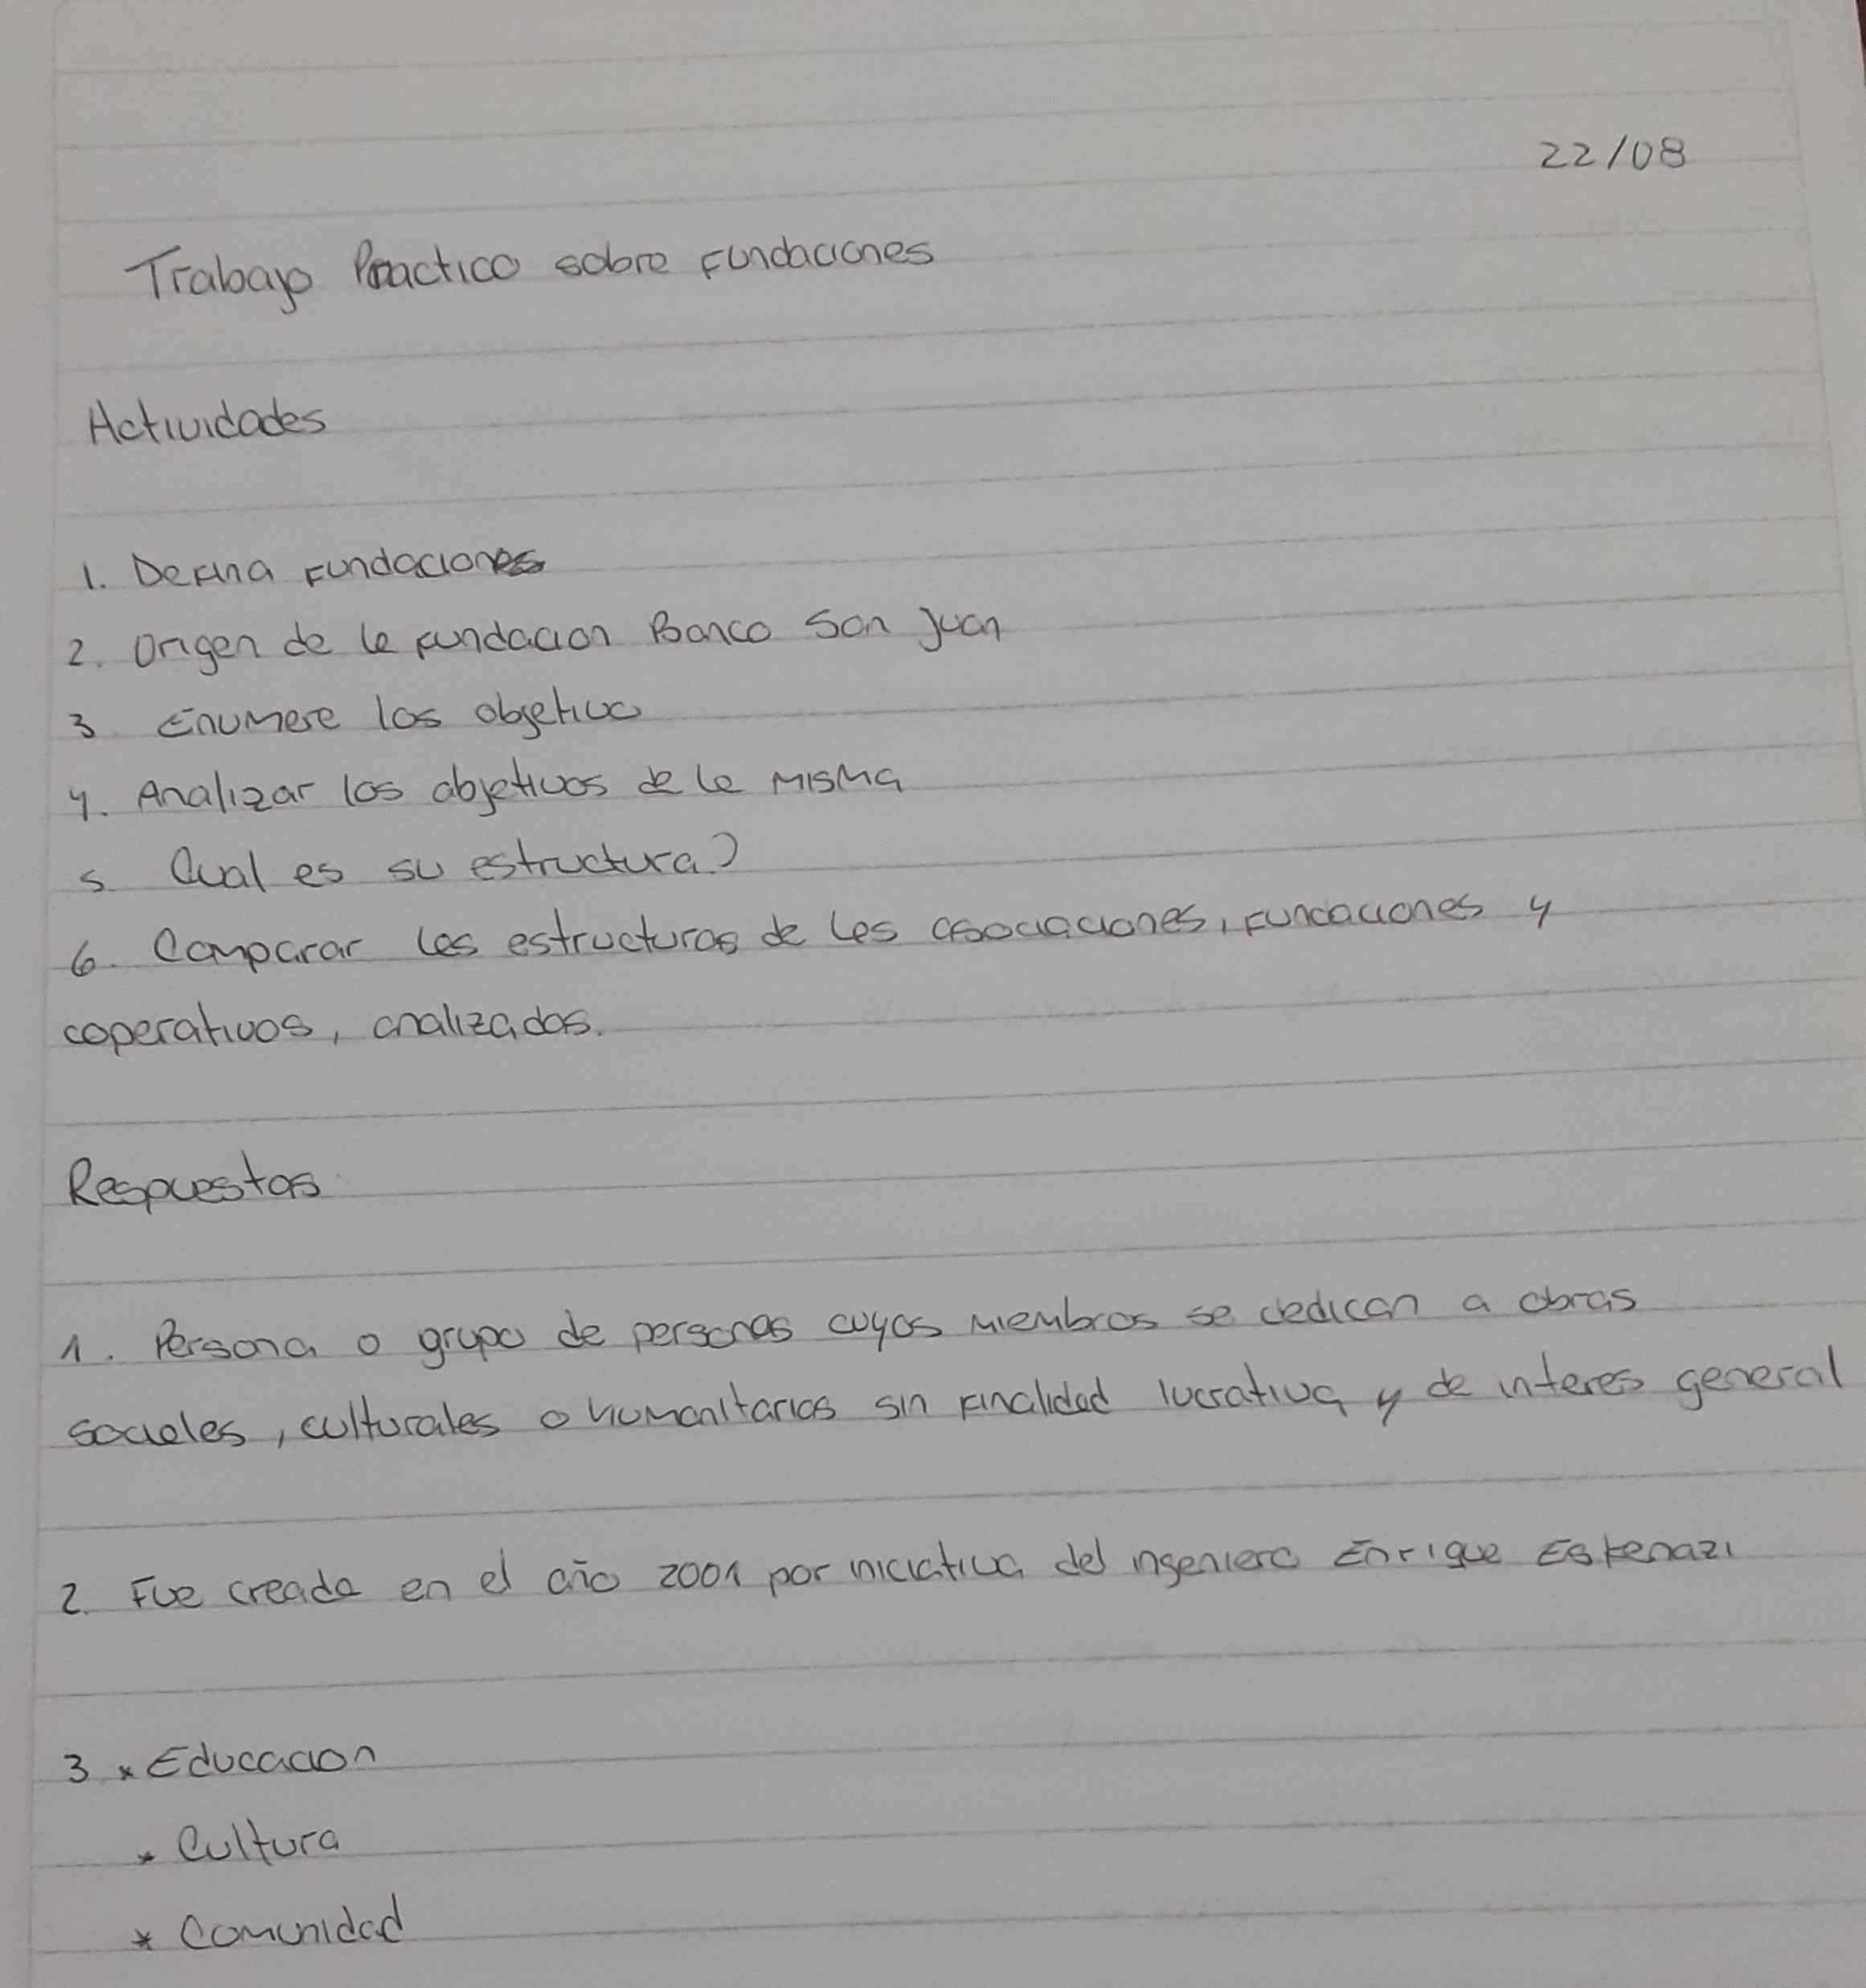 22/08
Trabajo Practico sobre Fundaciones
Actividades
1. Defina Fundaciones
2. Origen de la fundacion Banco San Juan
3 Enumere los objetivo
4. Analizar los objetivos de la misma
5 Cual es su estructura?
6. Comparar las estructuras de las asociaciones, Fundaciones y
coperativas, analizadas.
Respuestas
1. Persona o grupo de personas cuyos miembros se dedican a obras
sociales, culturales o humanitarias sin finalidad lucrativa y de interes general
2. Fue creada en el año 2001 por iniciativa del ingeniero Enrique Eskenazi
3 * Educacion
* Cultura
* Comunidad